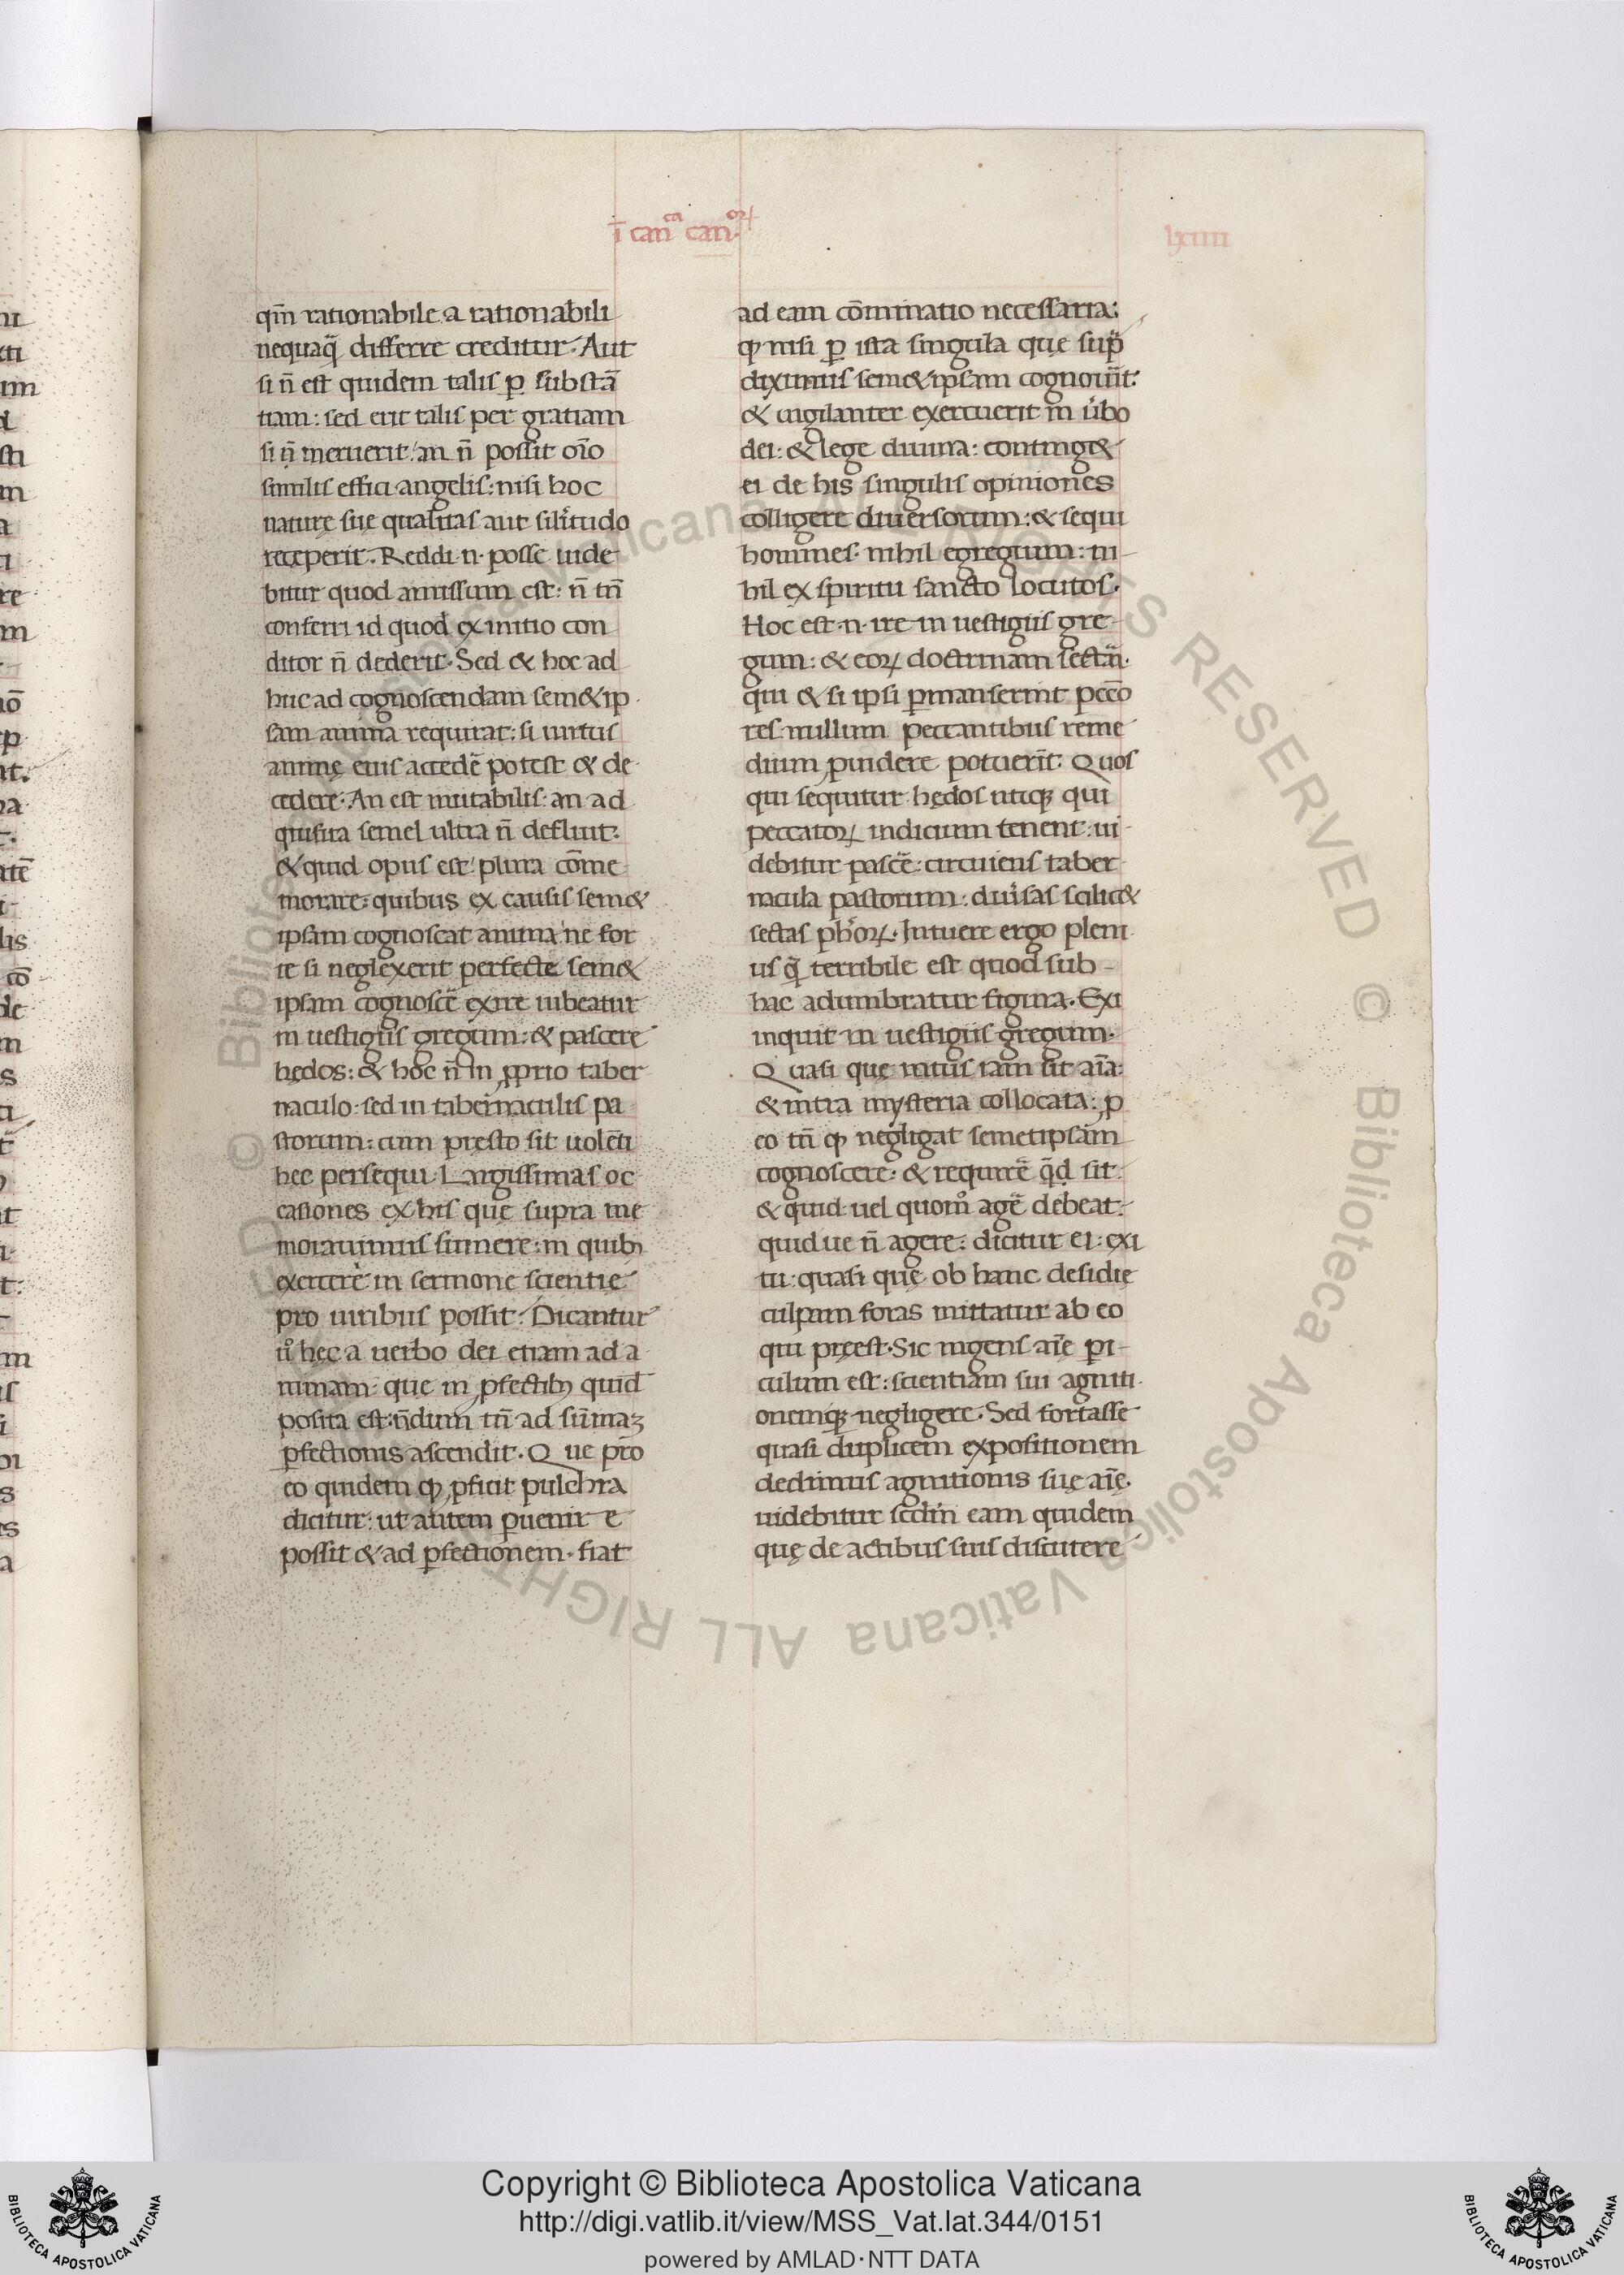 ī can̄ca can̄.orꝝ
lxiiii
qm̄ rationabile a rationabili
nequaq̄ differre creditur. Aut
si n̄ est quidem talis ꝑ substā
tiam: sed erit talis per gratiam
si n̄ meruerit: an n̄ possit oīo
similis effici angelis: nisi hoc
naturę suę qualitas aut sil'itudo
receperit. Reddi .n. posse uide
bitur quod amissum est: n̄ tn̄
conferri id quod ex initio con
ditor n̄ dederit. Sed & hoc ad
huc ad cognoscendam sem&ip
sam anima requirat: si uirtus
animę eius accedē potest & de
cedere. An est mutabilis: an ad
quisita semel ultra n̄ defluit.
& quid opus est plura cōme
morare: quibus ex causis sem&
ipsam cognoscat anima ne for
te si neglexerit perfecte sem&
ipsam cognoscē exire iubeatur
in uestigiis gregum: & pascere
hędos: & hoc n̄ in ꝓprio taber
naculo: sed in tabernaculis pa
storum: cum pręsto sit uolēti
hec persequi. Largissimas oc
casiones ex his quę supra me
morauimus sumere: in quibꝫ
exercere in sermone scientię
pro uiribus possit. Dicantur
ů hęc a uerbo dei etiam ad a
nimam: que in ꝓfectibꝫ quid
posita est: n̄dum tn̄ ad sūmaꝫ
ꝑfectionis ascendit. Que pro
eo quidem ꝙ ꝓficit pulchra
dicitur: ut autem ꝑuenire
possit & ad ꝑfectionem. fiat
ad eam cōminatio necessaria:
ꝙ nisi ꝑ ista singula quę sup̄
diximus sem&ipsam cognouīt:
& uigilanter exercuerit in u̇bo
dei: & lege diuina: conting&
ei de his singulis opiniones
colligere diuersorum: & sequi
homines nihil egregium: ni
hil ex spiritu sancto locutos.
Hoc est .n. ire in uestigiis gre
gum: & eoꝝ doctrinam sectā.
qui & si ipsi ꝑmanserint pccō
res: nullum peccantibus reme
dium ꝓuidere potuerīt. Quos
qui sequitur hędos utiqꝫ qui
peccatoꝝ indicium tenent: ui
debitur pascē: circuiens taber
nacula pastorum: diu̇sas scilic&
sectas ph'oꝝ. Intuere ergo pleni
us q̄ terribile est quod sub
hac adumbratur figura. Exi
inquit in uestigiis gregum.
Quasi quę intus iam sit aīa:
& intra mysteria collocata: ꝓ
eo tn̄ ꝙ negligat semetipsam
cognoscere: & requirē qd̄ sit
& quid uel quom̊ agē debeat:
quid ue n̄ agere: dicitur ei: exi
tu: quasi quę ob hanc desidię
culpam foras mittatur ab eo
qui pręest. Sic ingens aīę ꝑi
culum est: scientiam sui agniti
onemqꝫ negligere. Sed fortasse
quasi duplicem expositionem
dedimus agnitionis suę aīę.
uidebitur scdm̄ eam quidem
quę de actibus suis discutere
Copyright © Biblioteca Apostolica Vaticana
http://digi.vatlib.it/view/MSS_Vat.lat.344/0151
powered by AMLAD·NTT DATA